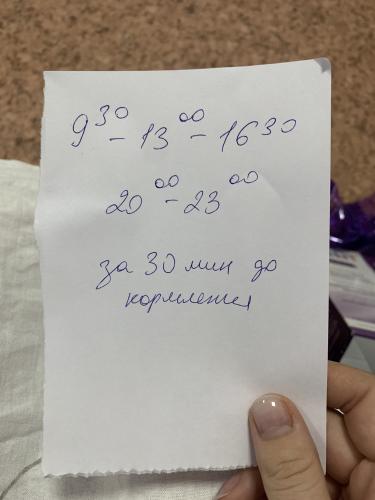 9³⁰ – 13⁰⁰ – 16³⁰
20⁰⁰ – 23⁰⁰
за 30 мин до
кормления